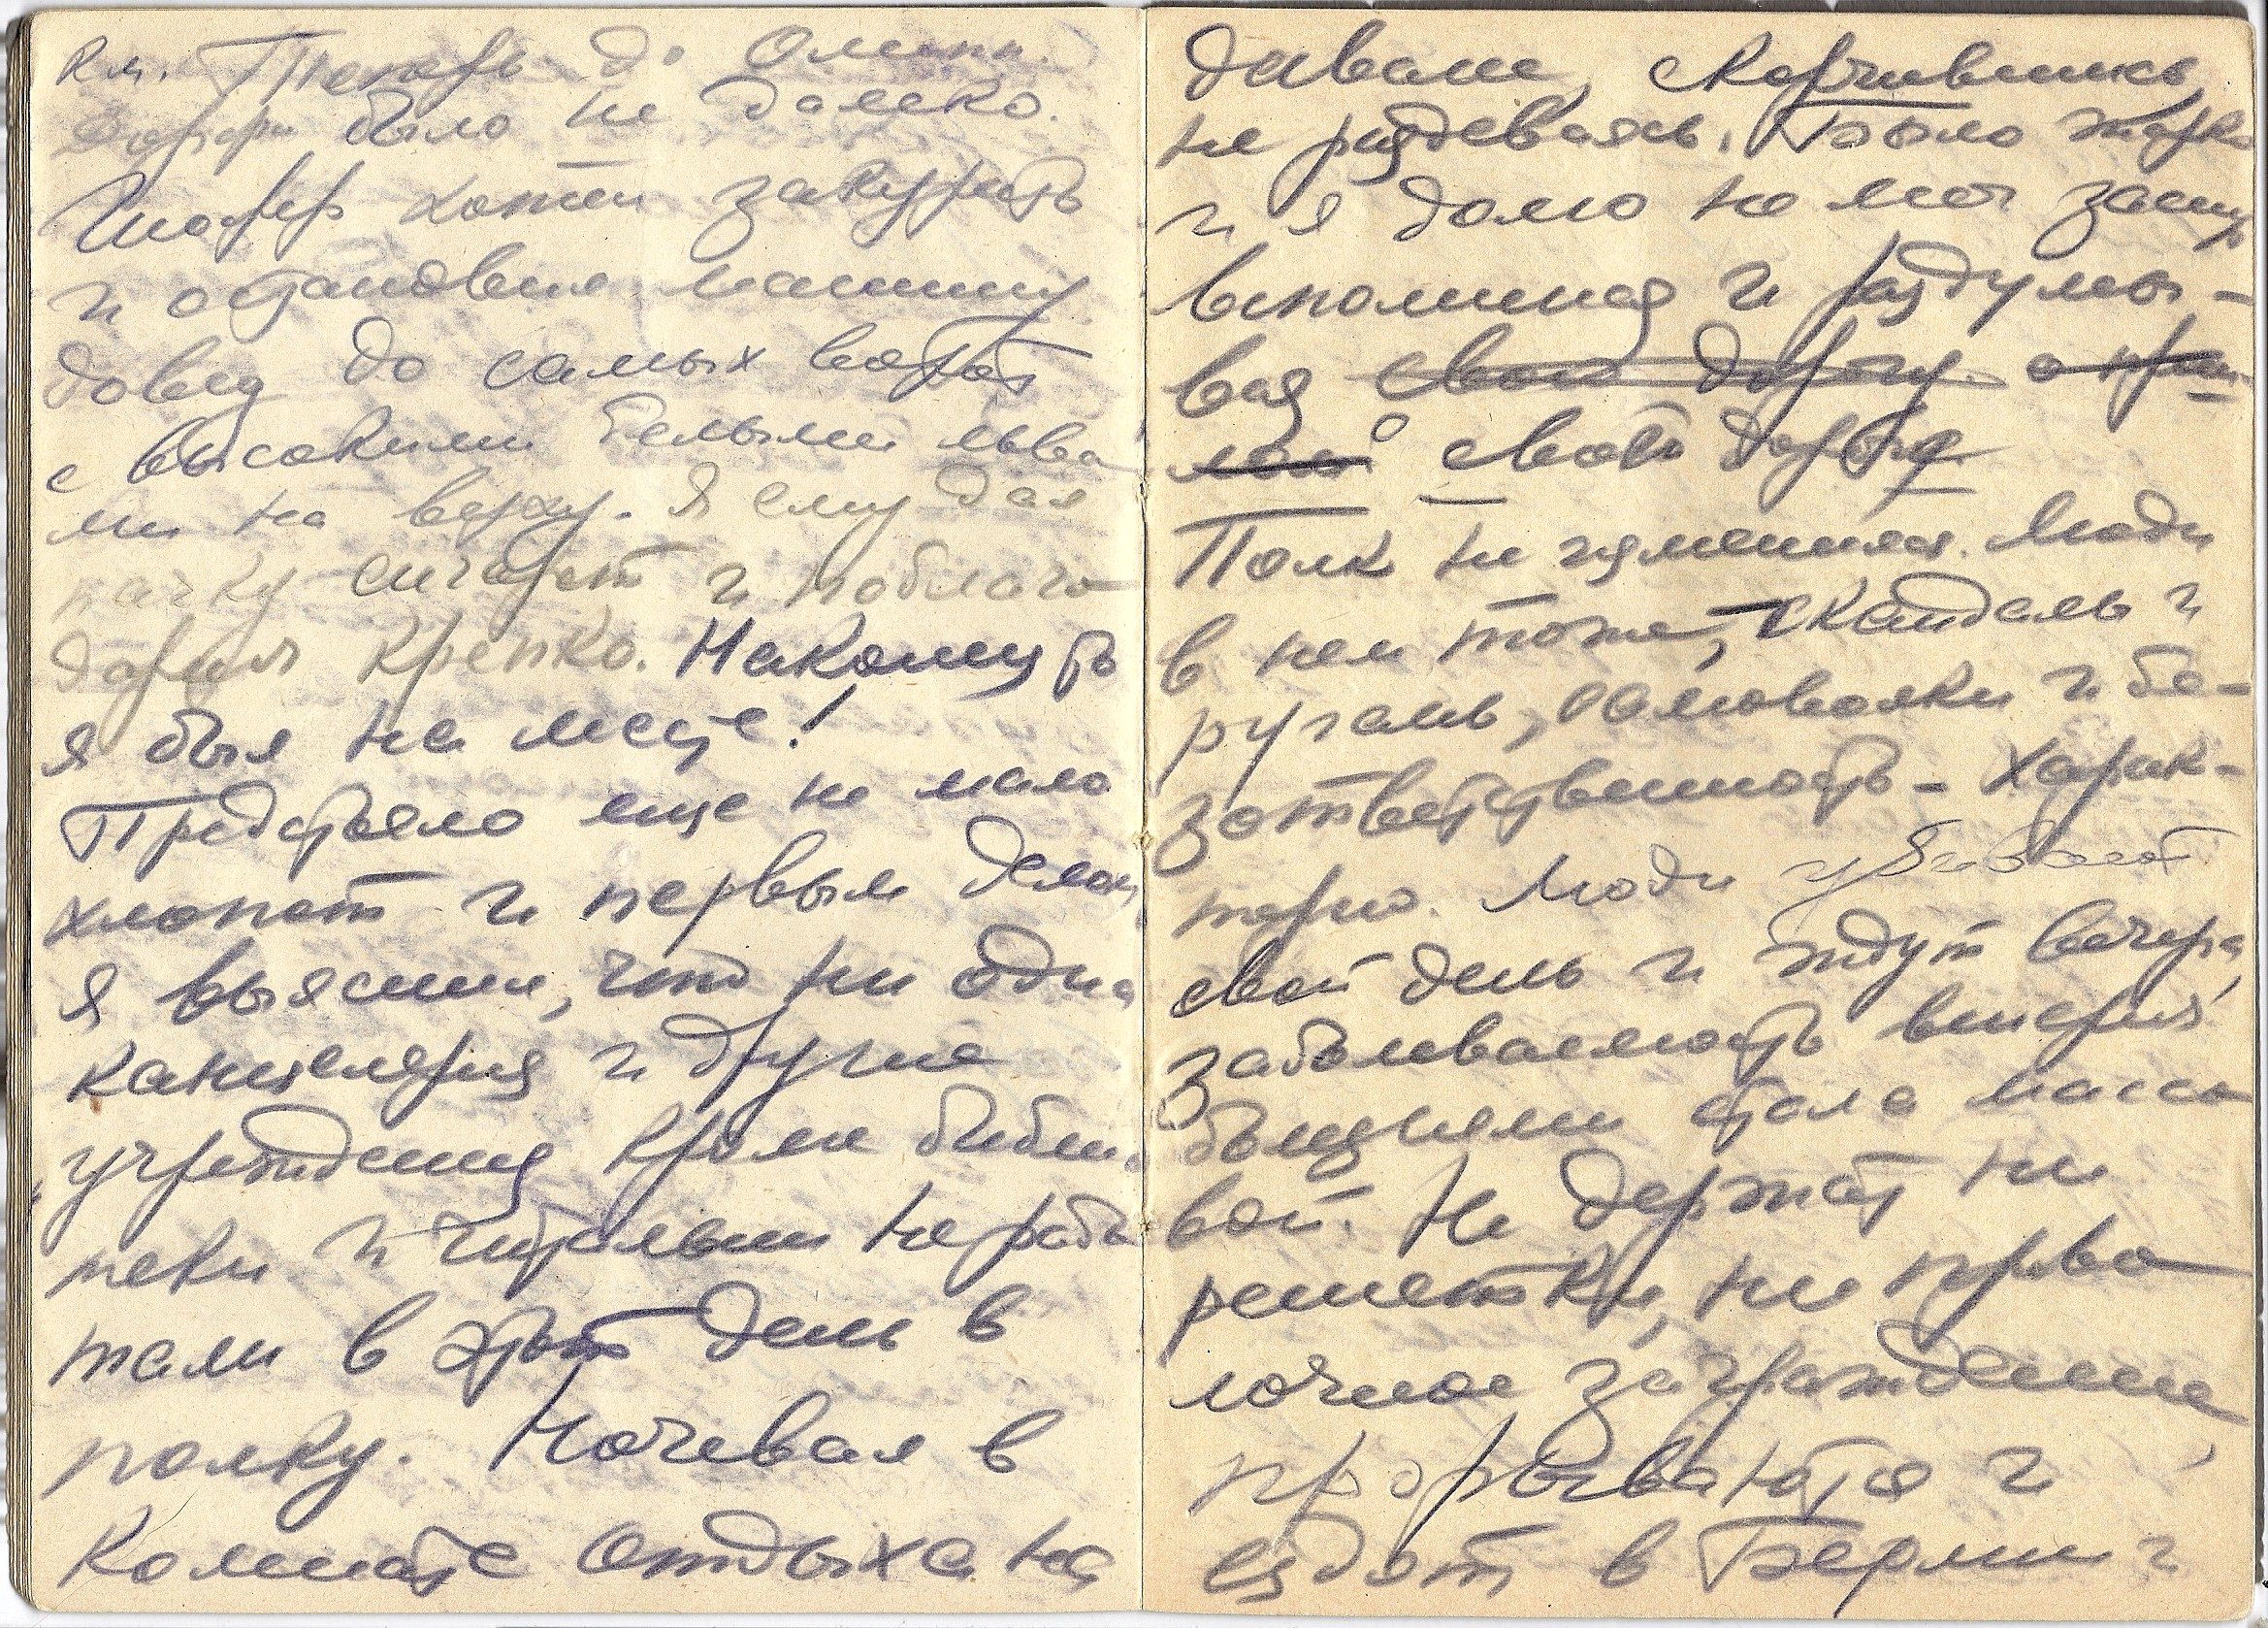 км. Теперь до Олимп.
дорфа было не далеко.
Шофер хотел закурить
и остановил машину
довед до самых ворот
с высокими белыми льва
ми на верху. Я ему дал
пачку сигарет и поблаго
дарил крепко. Наконец то
я был на месте!
Предстояло еще не мало
хлопот и первым делом
я выяснил, что ни одна
канцелярия и другие
учреждения кроме библио
теки и читальни не рабо
тали в этот день в
полку. Ночевал в
комнате отдыха на
диване, скорчившись,
не раздеваясь. Было жарко
и я долго не мог заснуть
вспоминая и раздумы-
вая свою дорогу о пре
о своей дороге
Полк не изменился. Люди
в нем тоже, скандалы и
ругань, самоволки и бе-
зответственность - харак-
терно. Люди убивают
свой день и ждут вечера,
заболеваемость венерич.
болезнями стала массо
вой. Не держат ни
решетки, ни прово
лочное заграждение,
прорываются и
ездят в Берлин и